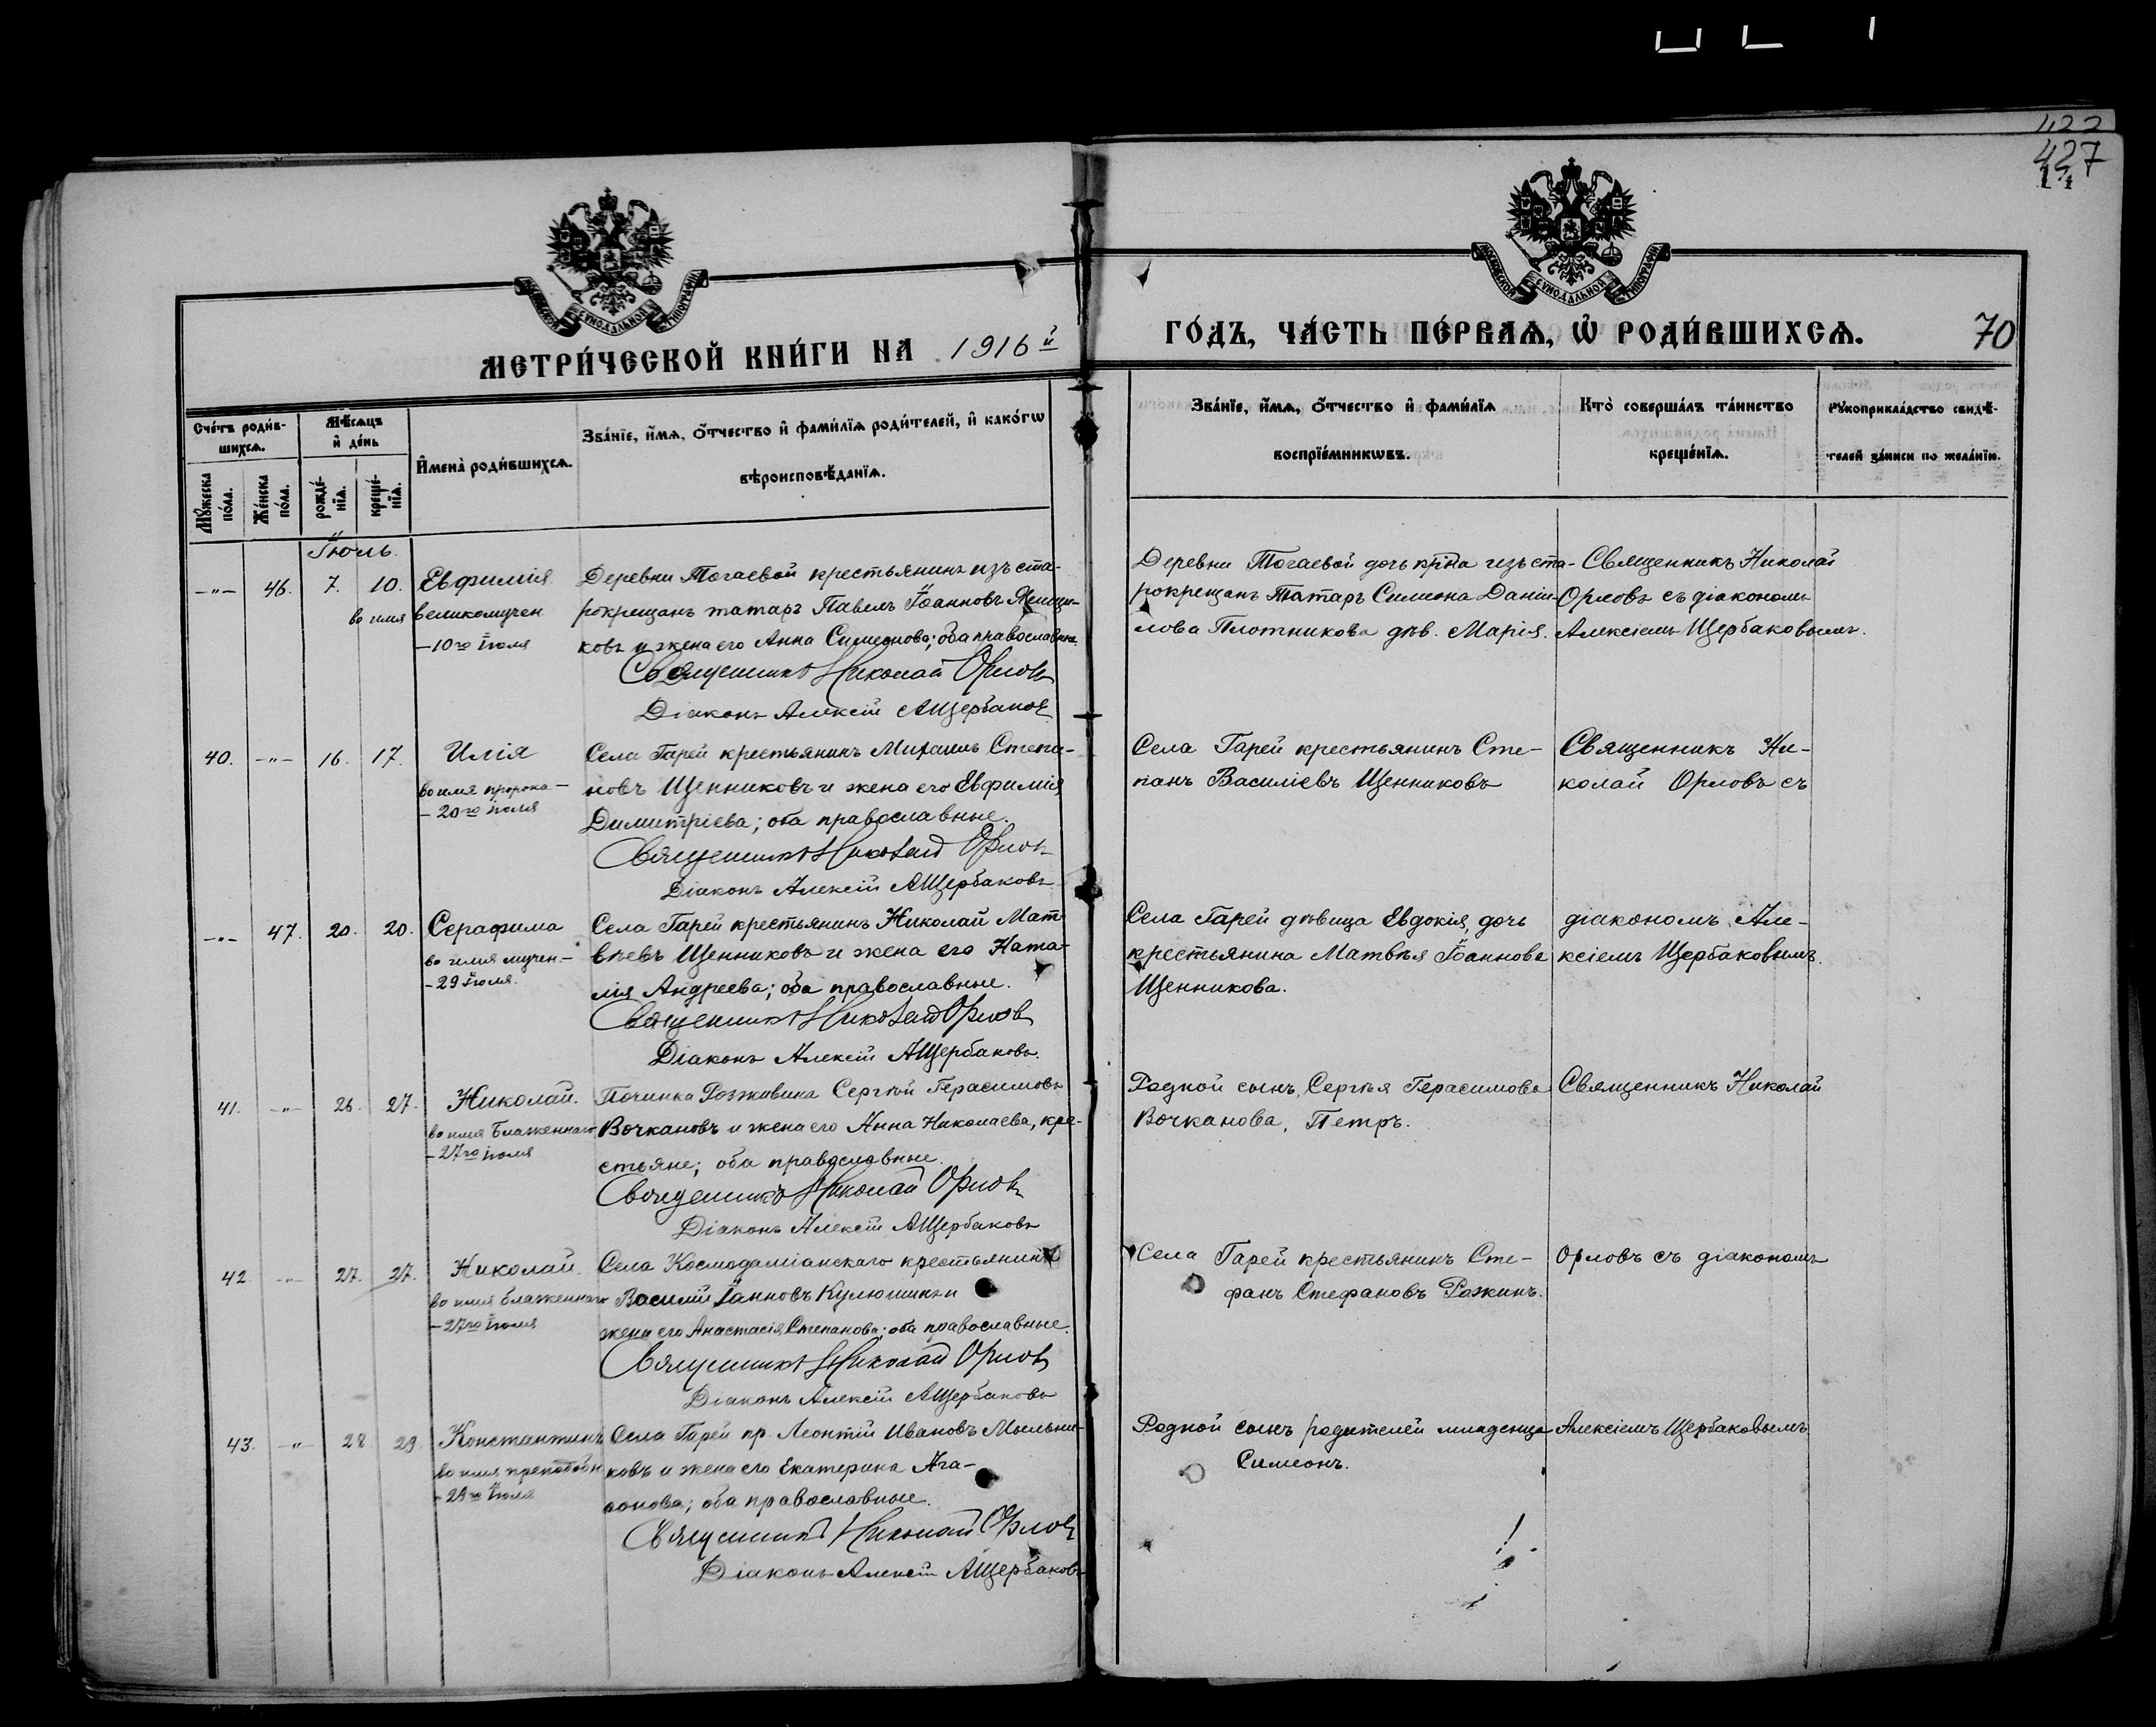 422
427
МЕТРИ́ЧЕСКОЙ КНИ́ГИ НА 1916й
ГО́ДЪ, ЧА́СТЬ ПЕ́РВАѦ, Ѡ҆ РОДИ́ВШИХСѦ.
70
Сче́тъ роди́в-
шихсѧ.
Мꙋ́жеска
по́ла.
Же́нска
по́ла.
Мѣ́сѧцъ
и҆ де́нь
рожде́-
нїѧ.
креще́-
нїѧ.
И҆мена̀ роди́вшихсѧ.
Зва́нїе, и҆́мѧ, о҆́тчество и҆ фами́лїѧ роди́телей, и҆ како́гѡ
вѣроисповѣ́данїѧ.
Зва́нїе, и҆́мѧ, о҆́тчество и҆ фами́лїѧ
воспрїе́мникѡвъ.
Кто̀ соверша́лъ та́инство
креще́нїѧ.
Рꙋкоприкла́дство свидѣ́-
телей за́писи по жела́нїю.
Іюль.
-"- 46. 7. 10. Евфимія
во имя великомучен
-10го іюля
Деревни Тогаевой крестьянинъ изъ ста-
рокрещанъ татаръ Павелъ Іоанновъ
ковъ и жена его Анна Симеонова; оба православные.
Священникъ Николай Орловъ
Діаконъ Алексій АЩербаковъ
Деревни Тогаевой дочь кр-на изъ ста-
рокрещанъ Татаръ Симеона Даніи-
лова Плотникова дѣв. Марія.
Священникъ Николай
Орловъ съ діакономъ
Алексіемъ Щербаковымъ.
40. -"- 16. 17. Илія
во имя пророка-
-20го іюля
Села Гарей крестьянинъ Михаилъ Степа-
новъ Щенниковъ и жена его Евфимія
Димитріева; оба православные.
Священникъ Николай Орловъ
Діаконъ Алексій АЩербаковъ
Села Гарей крестьянинъ Сте-
панъ Василіевъ Щенниковъ
Священникъ Ни-
колай Орловъ съ
-"- 47. 20. 20. Серафима
во имя мучен.-
-29 іюля.
Села Гарей крестьянинъ Николай Мат-
вѣевъ Щенниковъ и жена его Ната-
лія Андреева; оба православные.
Священникъ Николай Орловъ
Діаконъ Алексій АЩербаковъ.
Села Гарей дѣвица Евдокія, дочь
крестьянина Матвѣя Іоаннова
Щенникова.
діакономъ Але-
ксіемъ Щербаковымъ.
41. -"- 26. 27. Николай.
во имя Блаженнаго
-27го іюля
Починка Розживина Сергѣй Герасимовъ
Вочкановъ и жена его Анна Николаева, кре-
стьяне; оба православные.
Священникъ Николай Орловъ
Діаконъ Алексій АЩербаковъ
Родной сынъ, Сергѣя Герасимова
Вочканова, Петръ.
Священникъ Николай
42 -"- 27. 27. Николай
во имя блаженнаго
-27го іюля
Села Космодаміанскаго крестьянинъ
Василій Іанновъ Кулюшинъ и
жена его Анастасія Степанова; оба православные.
Священникъ Николай Орловъ
Діаконъ Алексій АЩербаковъ
Села Гарей крестьянинъ Сте-
фанъ Стефановъ Рожинъ.
Орловъ съ діакономъ
43. -"- 28 29. Константинъ
во имя преподобн
-29го іюля
Села Гарей кр. Леонтій Ивановъ Мыльни-
ковъ и жена его Екатерина Ага-
фонова; оба православные.
Священникъ Николай Орловъ
Діаконъ Алексій АЩербаковъ
Родной сынъ родителей младенца
Симеонъ.
Алексіемъ Щербаковымъ